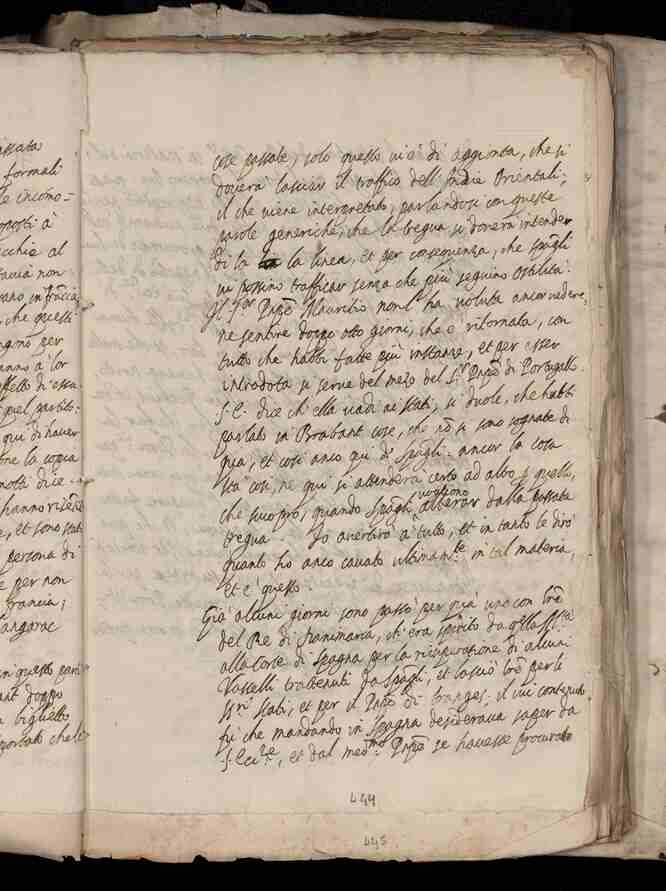 assata
formali
le incomo-
oposti à
cchie al
tacia non
vano, in francia
che questi
ngono per
anno à lor
effetto di essa
quel partito:
qui di haver
one la copia
motti dice
hanno
e, et sono stati
persona di
e per non
francia;
angarac
in questo parti
ant doppo
biglietto
portato che le
cose passate, solo questo vi è di aggionta, che si
doverà lasciar il traffico dell'Indie Orientali;
il che viene interpretato, parlandosi con queste
parole generiche, che la tregua si doverà intender
di la la linea, et per consequenza, che Spagli
vi possino trafficar senza che più seguino ostilità.
Il Sor Prīpe Mauritio non l'ha voluta ancor vedere,
ne sentire doppo otto giorni, che è ritornata, con
tutto che habbi fatte più instanze, et per esser
introdota si serve del mezo del Sr Prīpe di Portugallo.
S. E. dice ch'ella vadi ai stati, si duole, che habbi
parlato in Brabant cose, che nō si sono sognate di
qua, et così anco qui di Spagli. ancor la cosa
sta così, ne qui si attenderà certo ad altro, che quello,
che suo prò, quando Spagli vogliono alterar dalla passata
tregua. Io avertirò à tutto, et in tanto le dirò
quanto ho anco cavato ultimamte in tal materia,
et è questo.
Già alcuni giorni sono passò per quà uno con lrē
del Re di Danimarca, ch'era spedito da qlla Mtà
alla corte di Spagna per la ricuperatione di alcuni
Vasselli trattenuti da Spagli, et lasciò lrē per li
Sri stati, et per il Prīpe di Oranges, il cui contenuto
fù che mandando in Spagna desiderava saper da
S. Ecc.za, et dal medmo Prīpe se havesse procurato
444
445